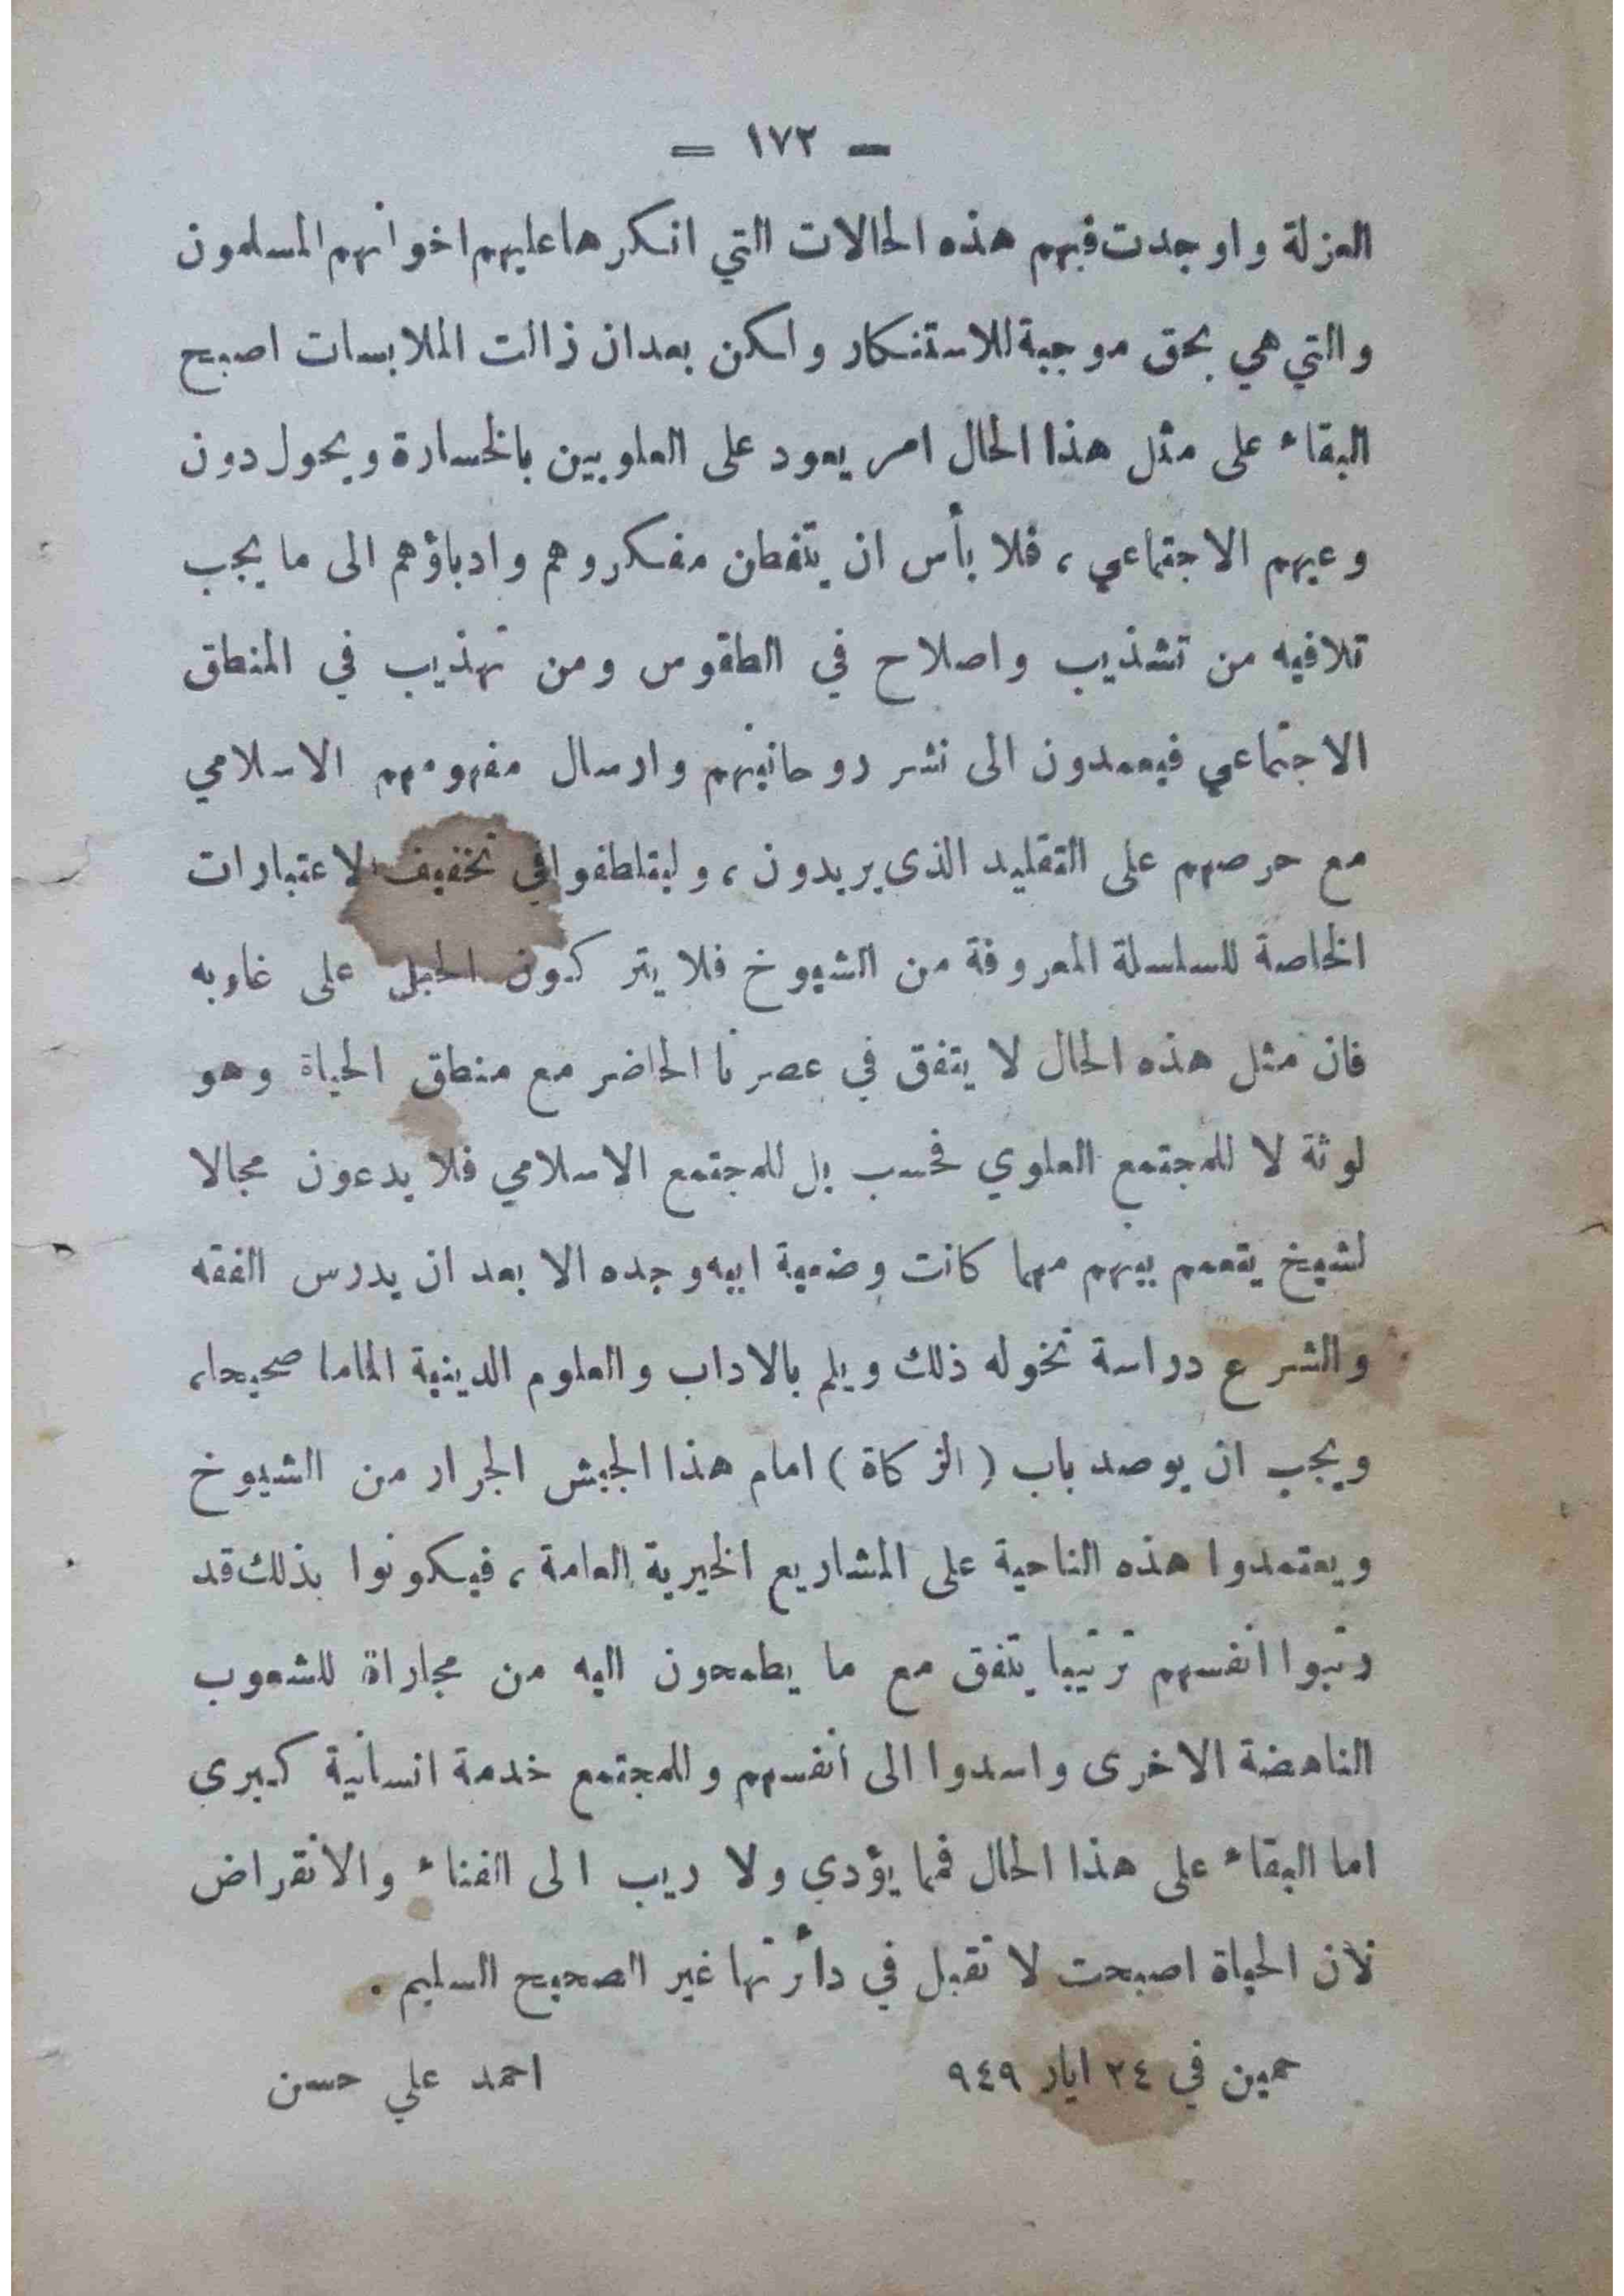 — ١٧٢ —
العزلة واوجدت فيهم هذه الحالات التي انكرها عليهم اخوانهم المسلمون
والتي هي بحق موجبة للاستنكار ولكن بعد ان زالت الملابسات اصبح
البقاء على مثل هذا الحال امر يعود على العلويين بالخسارة ويحول دون
وعيهم الاجتماعي ، فلا بأس ان يتفطن مفكروهم وادباؤهم الى ما يجب
تلافيه من تشذيب واصلاح في الطقوس ومن تهذيب في المنطق
الاجتماعي فيعمدون الى نشر روحانيتهم وارسال مفهومهم الاسلامي
مع حرصهم على التقليد الذي يريدون ، وليتلطفوا في تخفيف الاعتبارات
الخاصة للسلسلة المعروفة من الشيوخ فلا يتركون الحبل على غاربه
فان مثل هذه الحال لا يتفق في عصرنا الحاضر مع منطق الحياة وهو
لوثة لا للمجتمع العلوي فحسب بل للمجتمع الاسلامي فلا يدعون مجالا
لشيخ يتعمم بينهم مهما كانت وضعية ابيه وجده الا بعد ان يدرس الفقه
والشرع دراسة تخوله ذلك ويلم بالاداب والعلوم الدينية الماما صحيحا ،
ويجب ان يوصد باب ( الزكاة ) امام هذا الجيش الجرار من الشيوخ
ويعتمدوا هذه الناحية على المشاريع الخيرية العامة ، فيكونوا بذلك قد
رتبوا انفسهم ترتيبا يتفق مع ما يطمحون اليه من مجاراة للشعوب
الناهضة الاخرى واسدوا الى انفسهم وللمجتمع خدمة انسانية كبرى
اما البقاء على هذا الحال فمما يؤدي ولا ريب الى الفناء والانقراض
لأن الحياة اصبحت لا تقبل في دائرتها غير الصحيح السليم .
حمين في ٢٤ ايار ٩٤٩ احمد علي حسن